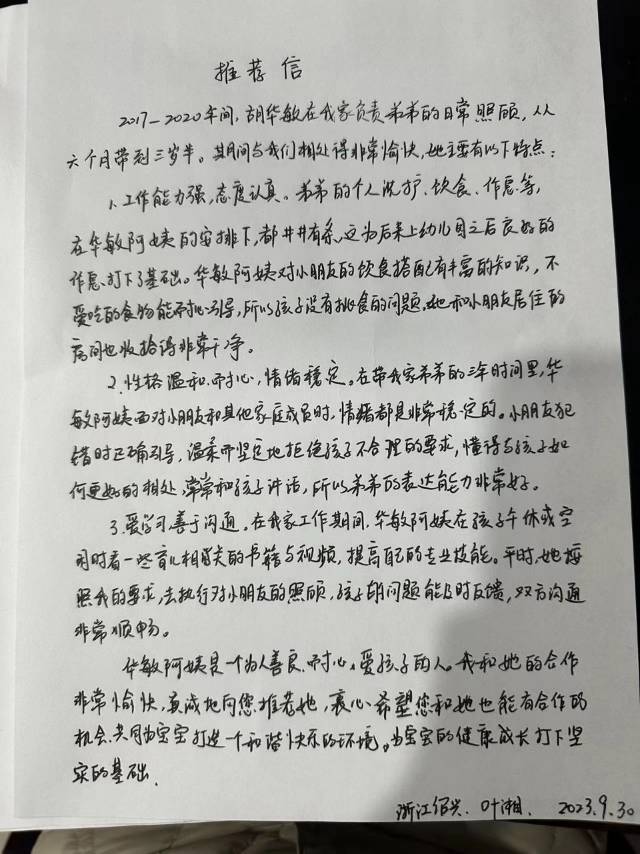 推荐信
2017—2020年间,胡华敏在我家负责弟弟的日常照顾,从
六个月带到三岁半。其间与我们相处得非常愉快,她主要有以下特点:
1、工作能力强,态度认真。弟弟的个人洗护、饮食、作息等,
在华敏阿姨的安排下,都井井有条,这为后来上幼儿园之后良好的
作息打下了基础。华敏阿姨对小朋友的饮食搭配有丰富的知识,不
爱吃的食物能耐心引导,所以孩子没有挑食的问题,她和小朋友居住的
房间也收拾得非常干净。
2、性格温和、耐心,情绪稳定。在带我家弟弟的三年时间里,华
敏阿姨面对小朋友和其他家庭成员时,情绪都是非常稳定的。小朋友犯
错时正确引导,温柔而坚定地拒绝孩子不合理的要求,懂得与孩子如
何更好的相处,常常和孩子讲话,所以弟弟的表达能力非常好。
3、爱学习,善于沟通。在我家工作期间,华敏阿姨在孩子午休或空
闲时看一些育儿相关的书籍与视频,提高自己的专业技能。平时,她按
照我的要求,去执行对小朋友的照顾,孩子的问题能及时反馈,双方沟通
非常顺畅。
华敏阿姨是一个为人善良、耐心、爱孩子的人。我和她的合作
非常愉快,真诚地向您推荐她,衷心希望您和她也能有合作的
机会,共同为宝宝打造一个和谐快乐的环境。为宝宝的健康成长打下坚
实的基础.
浙江绍兴、叶湘. 2023.9.30